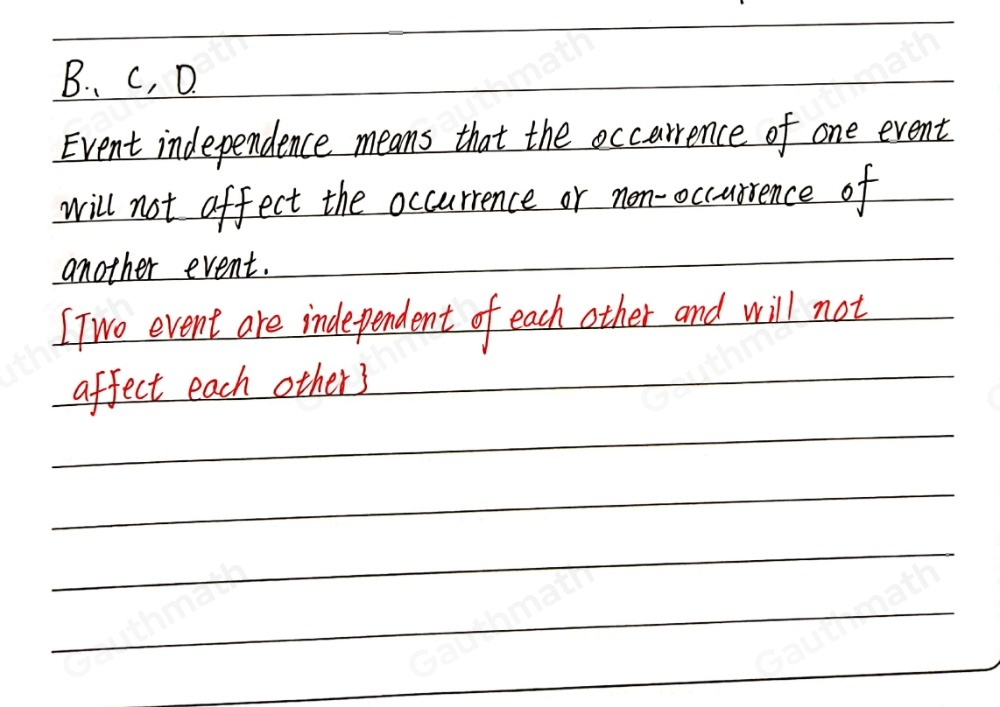 B., C, D.
Event independence means that the occurrence of one event
will not affect the occurrence or non-occurrence of
another event.
[Two event are independent of each other and will not
affect each other}
Gauthmath
Gauthmath
Gauthmath
Gauthmath
Gauthmath
Gauthmath
Gauthmath
Gauthmath
Gauthmath